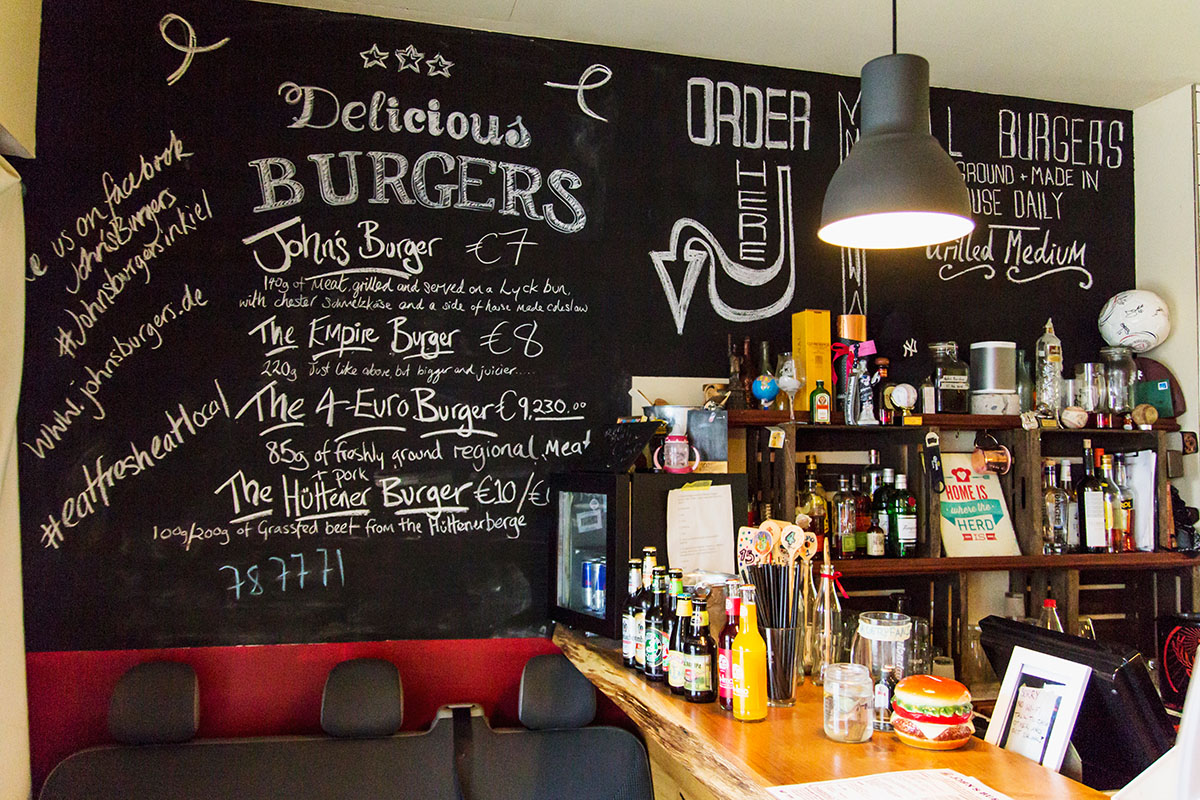 us on facebook
JohnsBurgers
#Johnsburgersinkiel
www.johnsburgers.de
#eatfresheatlocal
Delicious
BURGERS
John's Burger €7
140g of Meat, grilled and served on a Lyck bun,
with chester Schmelzkäse and a side of house made coleslaw
The Empire Burger €8
220g Just like above, but bigger and juicier....
The 4-Euro Burger €9,230.00
85g of freshly ground regional Meat
+ Pork
The Hüttener Burger €10/
100g/200g of Grassfed beef from the Hüttenerberge
787771
ORDER
HERE
BURGERS
GROUND + MADE IN
DAILY
Grilled Medium
HOME IS
where the
HERD
IS